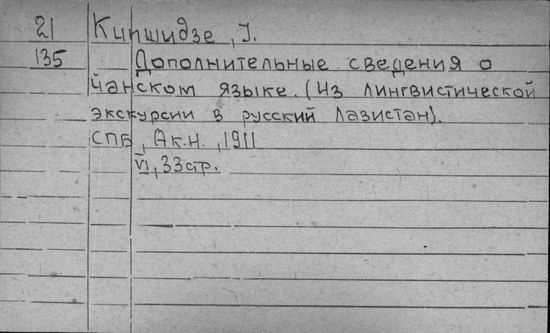 21 Кипшидзе, I.
135 Дополнительные сведения о
чанском языке. (Из лингвистической
экскурсии в русский Лазистан).
СПБ, Ак.Н., 1911
VI, 33 стр.